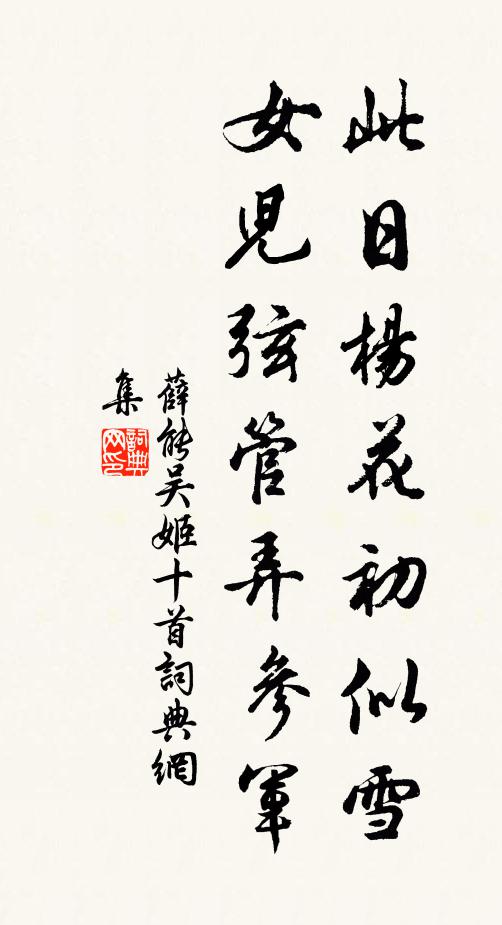 此日楊花初似雪
女兒弦管弄參軍
薛能吳姬十首詞典網
集
詞典
网印